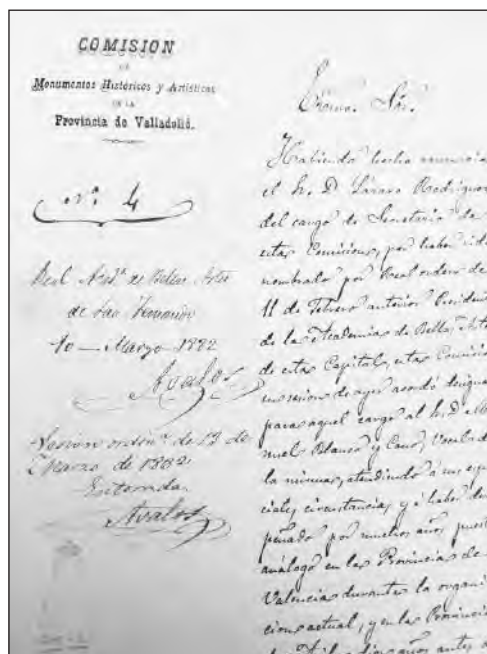 COMISION
DE
Monumentos Históricos y Artísticos
EN LA
Provincia de Valladolid.
Nº. 4
Real Acadª de Bellas Artes
de San Fernando
10 — Marzo 1882
Avalos
Sesion ordinª de 13 de
Marzo de 1882
Enterada.
Avalos
Excmo. Sór.
Habiendo hecho renuncia
el Sr. D. Lázaro Rodriguez
del cargo de Secretario de
esta Comision, por haber sido
nombrado por Real orden de
11 de Febrero anterior Presidente
de la Academia de Bellas Artes
de esta Capital, esta Comision
en sesion de ayer acordó
para aquel cargo al Sr. D. Ma
nuel Blanco y Cano, Vocal de
la misma, atendiendo á sus espe
ciales circunstancias, y á haber desem
peñado por muchos años puesto
análogo en la Provincia de
Valencia durante la organi
cion actual, y en la Provincia
de años antes